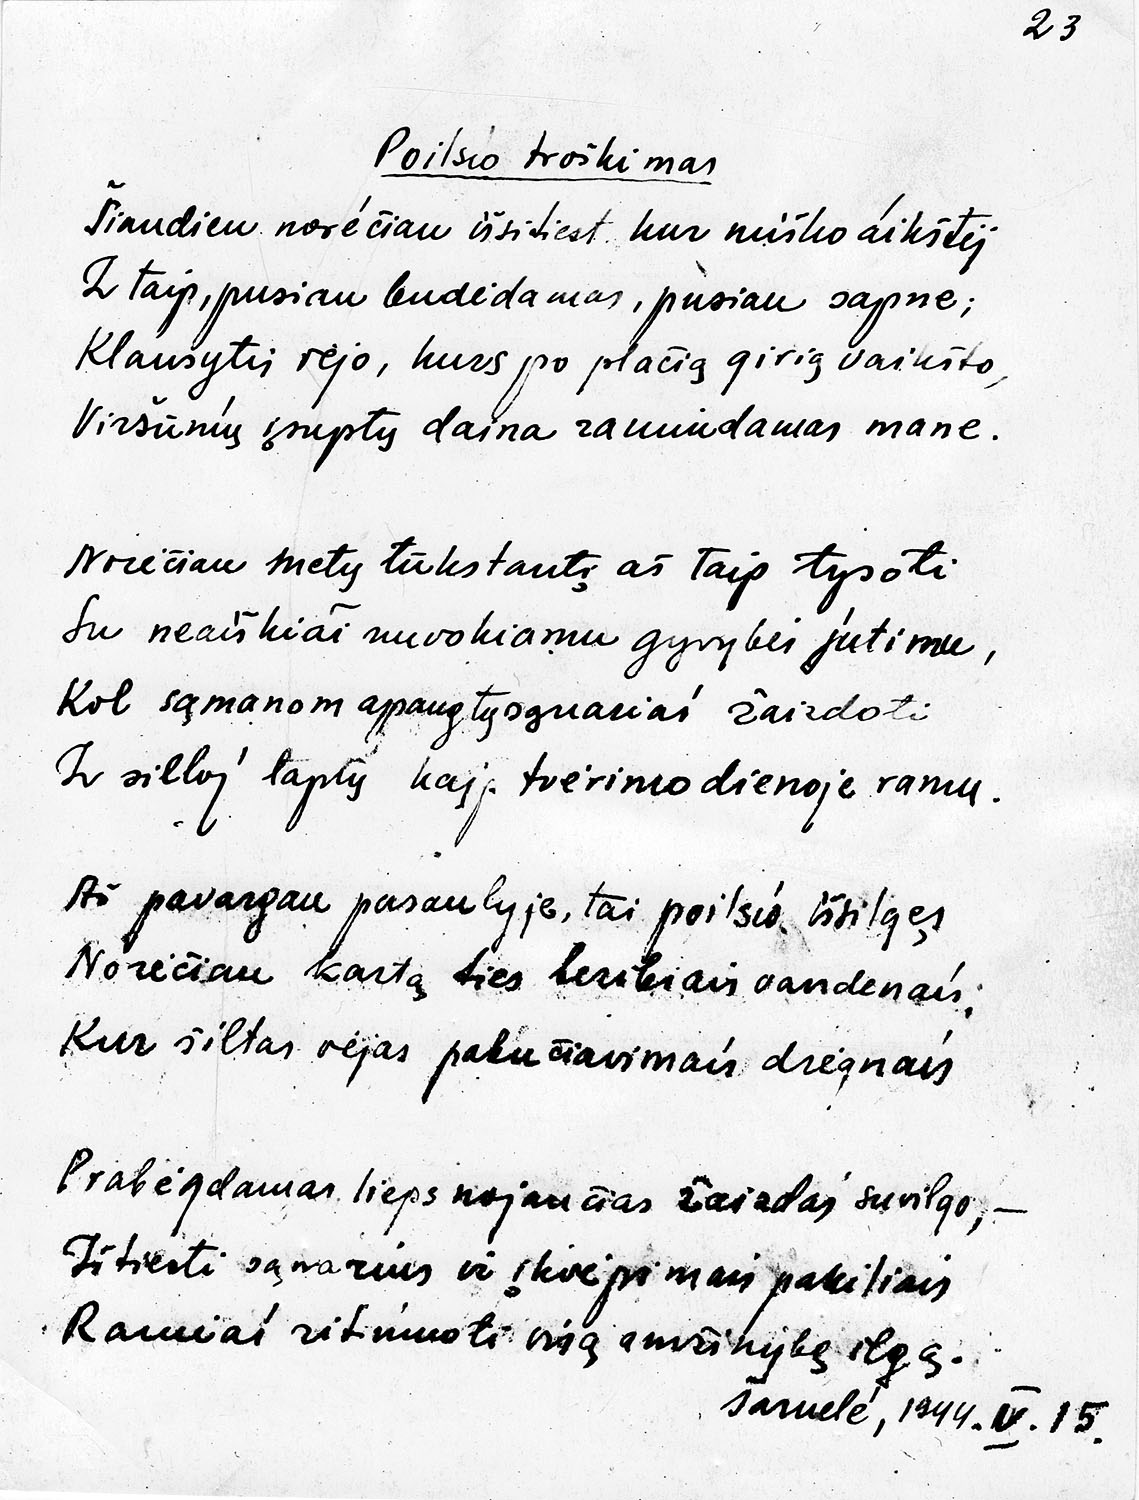 23
Poilsio troškimas
Šiandien norėčiau išsitiest kur miško áikštėj
Ir taip, pusiau budėdamas, pusiau sapne;
Klausytis vėjo, kurs po plačią girią vaikšto,
Viršūnių įsuptų daina ramindamas mane.
Norėčiau metų tūkstantį aš taip tysoti
Su neaiškiai nuvokiamu gyvybės jutimu,
Kol sąmanom apaugtų sąnariai žaizdoti
Ir silloj taptų kaip tvėrimo dienoje ramu.
Aš pavargau pasaulyje, tai poilsio išsilgęs
Norėčiau kartą ties beribiais vandenais,
Kur šiltas vėjas pabučiavimais drėgnais
Prabėgdamas liepsnojančias žaizdas suvilgo, —
Ištiesti sąnarius ir įkvėpimais pakiliais
Ramiai ritmuoti visą amžinybę ilgą.
Šarnelė, 1944. IV. 15.